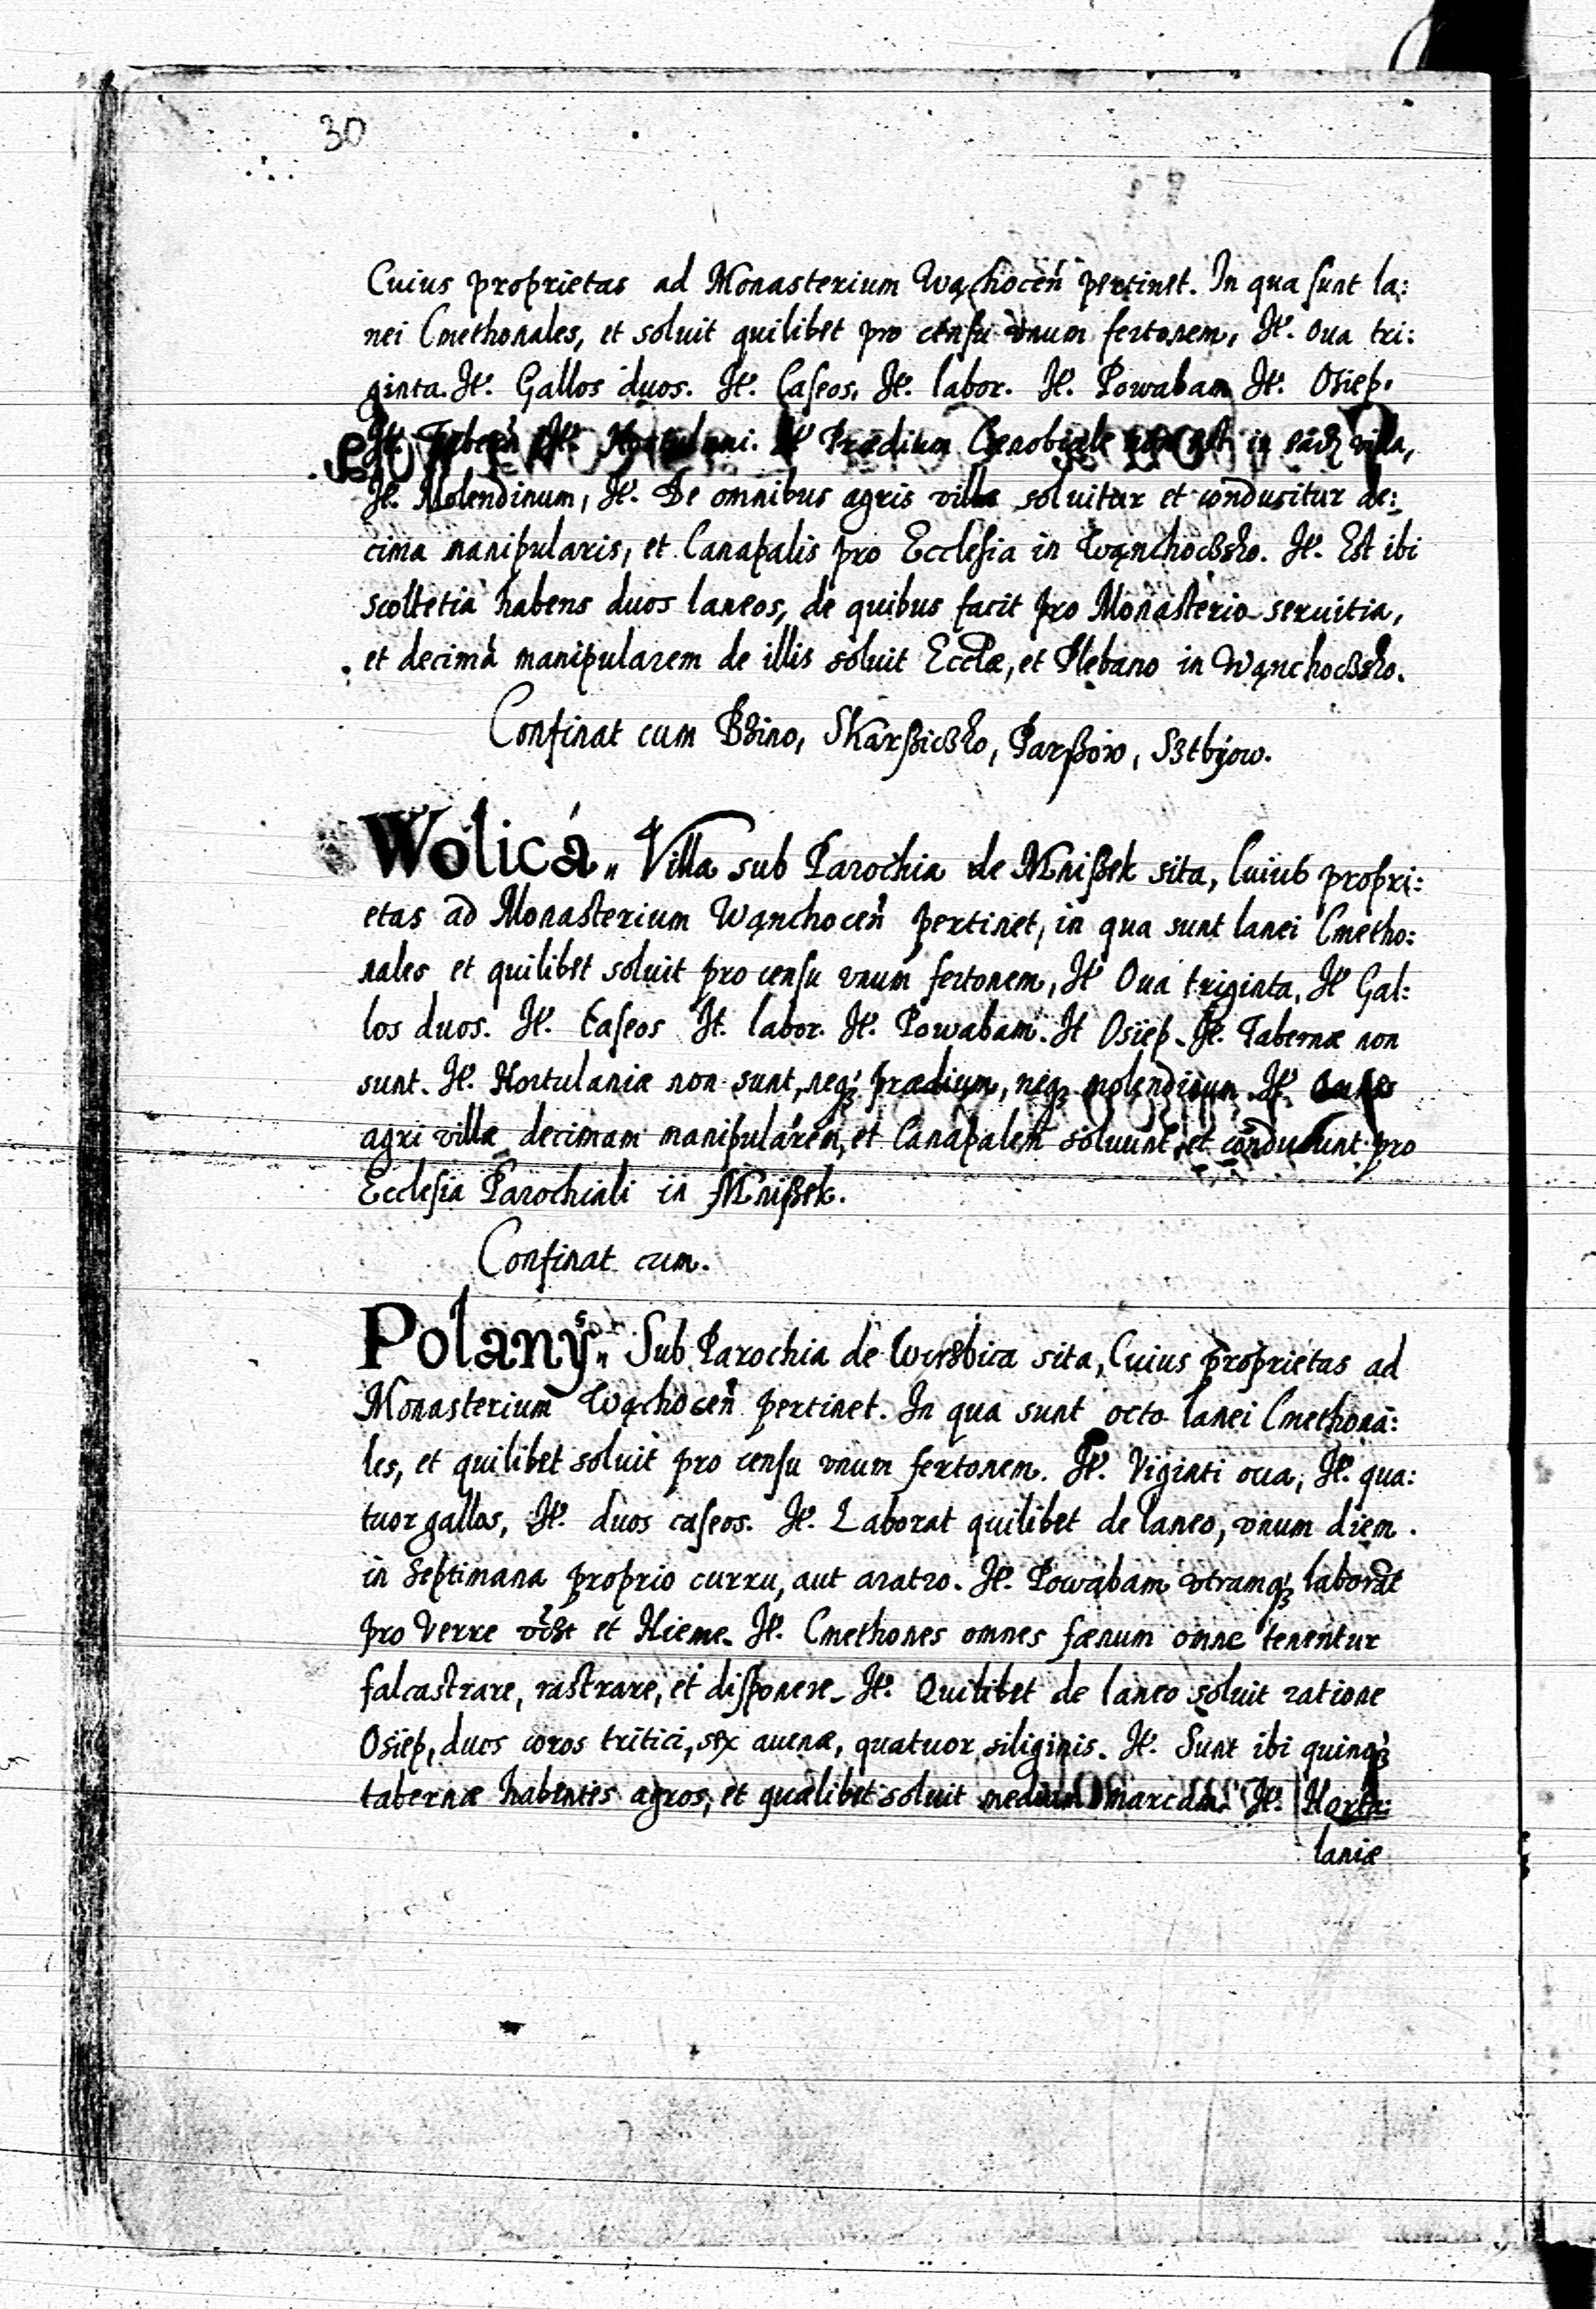 30
Cuius proprietas ad Monasterium Wąchoceń pertinet. In qua sunt la:
nei Cmethonales, et soluit quilibet pro censu vnum fertonem, It. oua tri:
ginta. It. Gallos duos. It. Caseos, It. labor. It. Powabam It. Osiep.
It. It. Hortulani. It Prædium Cænobiale in eadẽ villa,
It. Molendinum, It. De omnibus agris villæ soluitur et conducitur de:
cima manipularis, et Canapalis pro Ecclesia in Wąnchoczsko. It. Est ibi
scoltetia habens duos laneos, de quibus facit pro Monasterio seruitia,
et decimã manipularem de illis soluit Ecclæ, et Plebano in Wąnchoczsko.
Confinat cum Bzino, Skarßiczko, Parßow,
Wolicá„ Villa sub Parochia de Mnißek sita, Cuius propri:
etas ad Monasterium Wąnchoceń pertinet, in qua sunt lanei Cmetho:
nales et quilibet soluit pro censu vnum fertonem, It Oua triginta, It Gal:
los duos. It. Caseos It. labor. It. Powabam. It Osiep. It. Tabernæ non
sunt. It. Hortulaniæ non sunt, neqꝫ prædium, neqꝫ molendinum. It. Omnes
agri villæ decimam manipularem, et Canapalem soluunt, et conducunt pro
Ecclesia Parochiali in Mnißek.
Confinat cum.
Polany„ Sub Parochia de Wirzbica sita, Cuius proprietas ad
Monasterium Wąchoceń pertinet. In qua sunt octo lanei Cmethona:
les, et quilibet soluit pro censu vnum fertonem. It. Viginti oua, It. qua:
tuor gallos, It. duos caseos. It. Laborat quilibet de laneo, vnum diem.
in Septimana proprio curru, aut aratro. It. Powabam vtramqꝫ laborãt
pro Verre et Hieme. It. Cmethones omnes fænum omne tenentur
falcastrare, rastrare, et disponere. It. Quilibet de laneo soluit ratione
Osiep, duos coros tritici, sex auenæ, quatuor siliginis. It. Sunt ibi quinqꝫ
tabernæ habentes agros, et quælibet soluit mediam marcam. It. Hortu:
laniæ